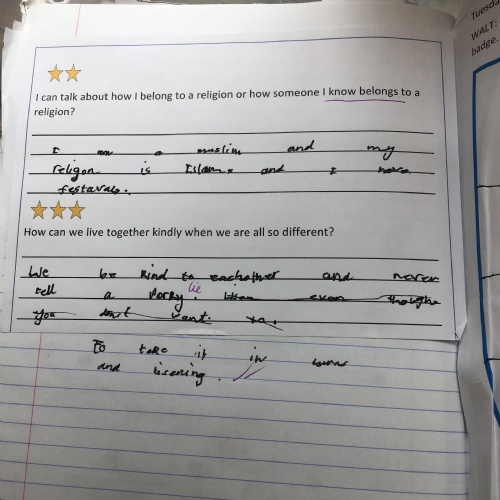 Tuesda
WALT:
badge.
I can talk about how I belong to a religion or how someone I know belongs to a
religion?
I am a muslim and my
religon is Islam. and I have
festavals.
How can we live together kindly when we are all so different?
We be kind to eachother and never
tell a porky. lie even thoughe
you don't want to.
To take it in turns
and lisening.